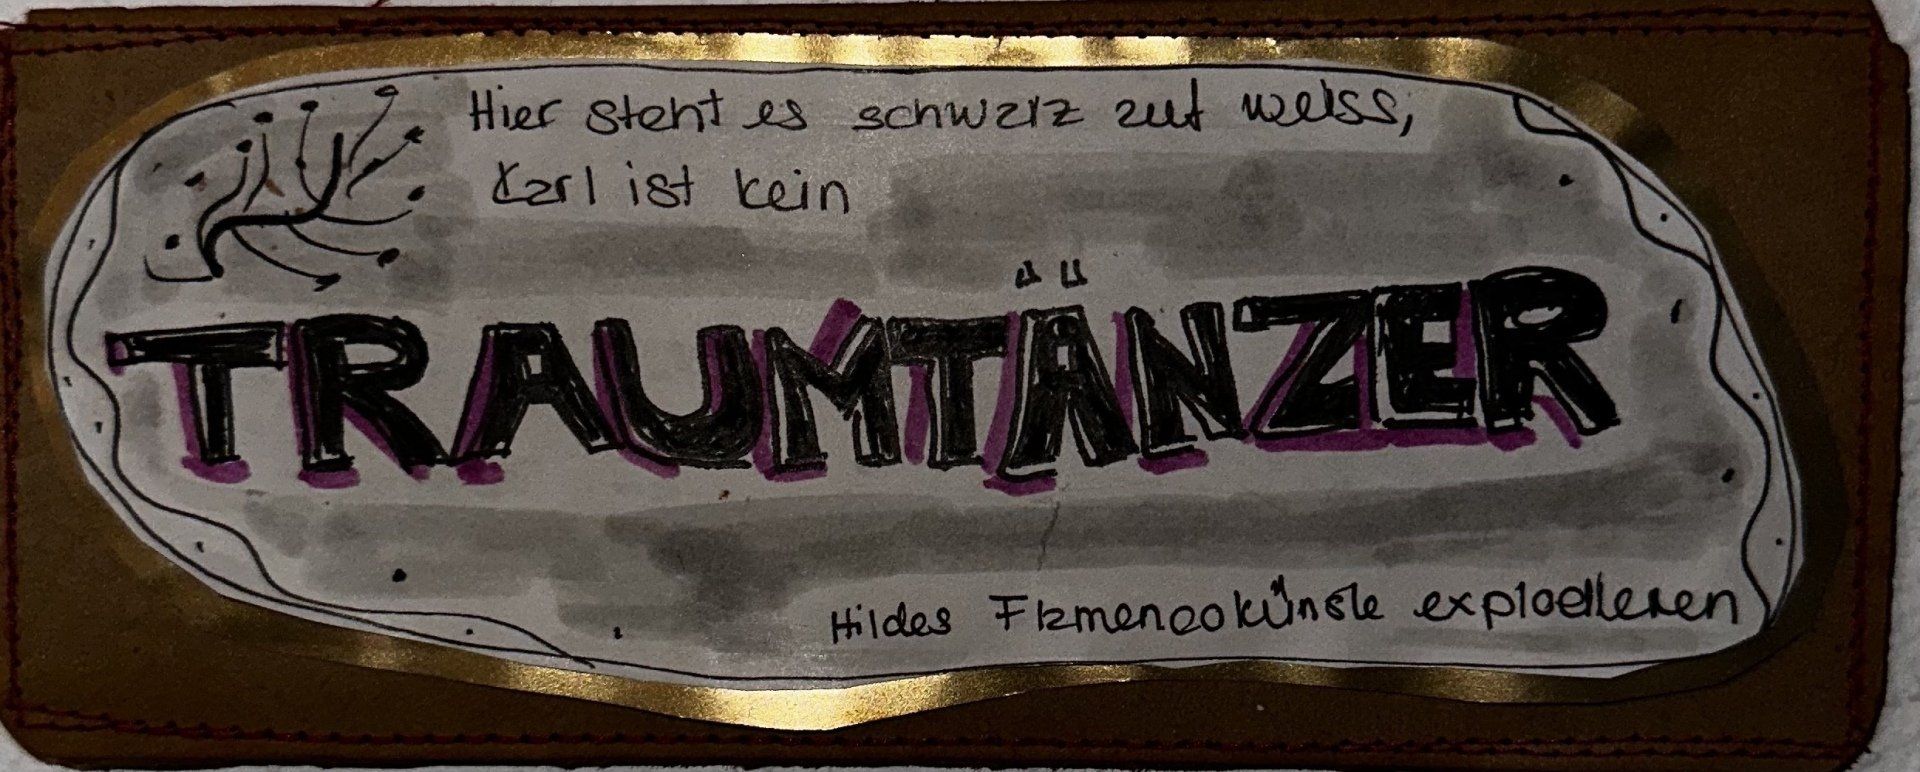 Hier steht es schwarz auf weiss,
Karl ist kein
TRAUMTÄNZER
Hildes Flamencokünste